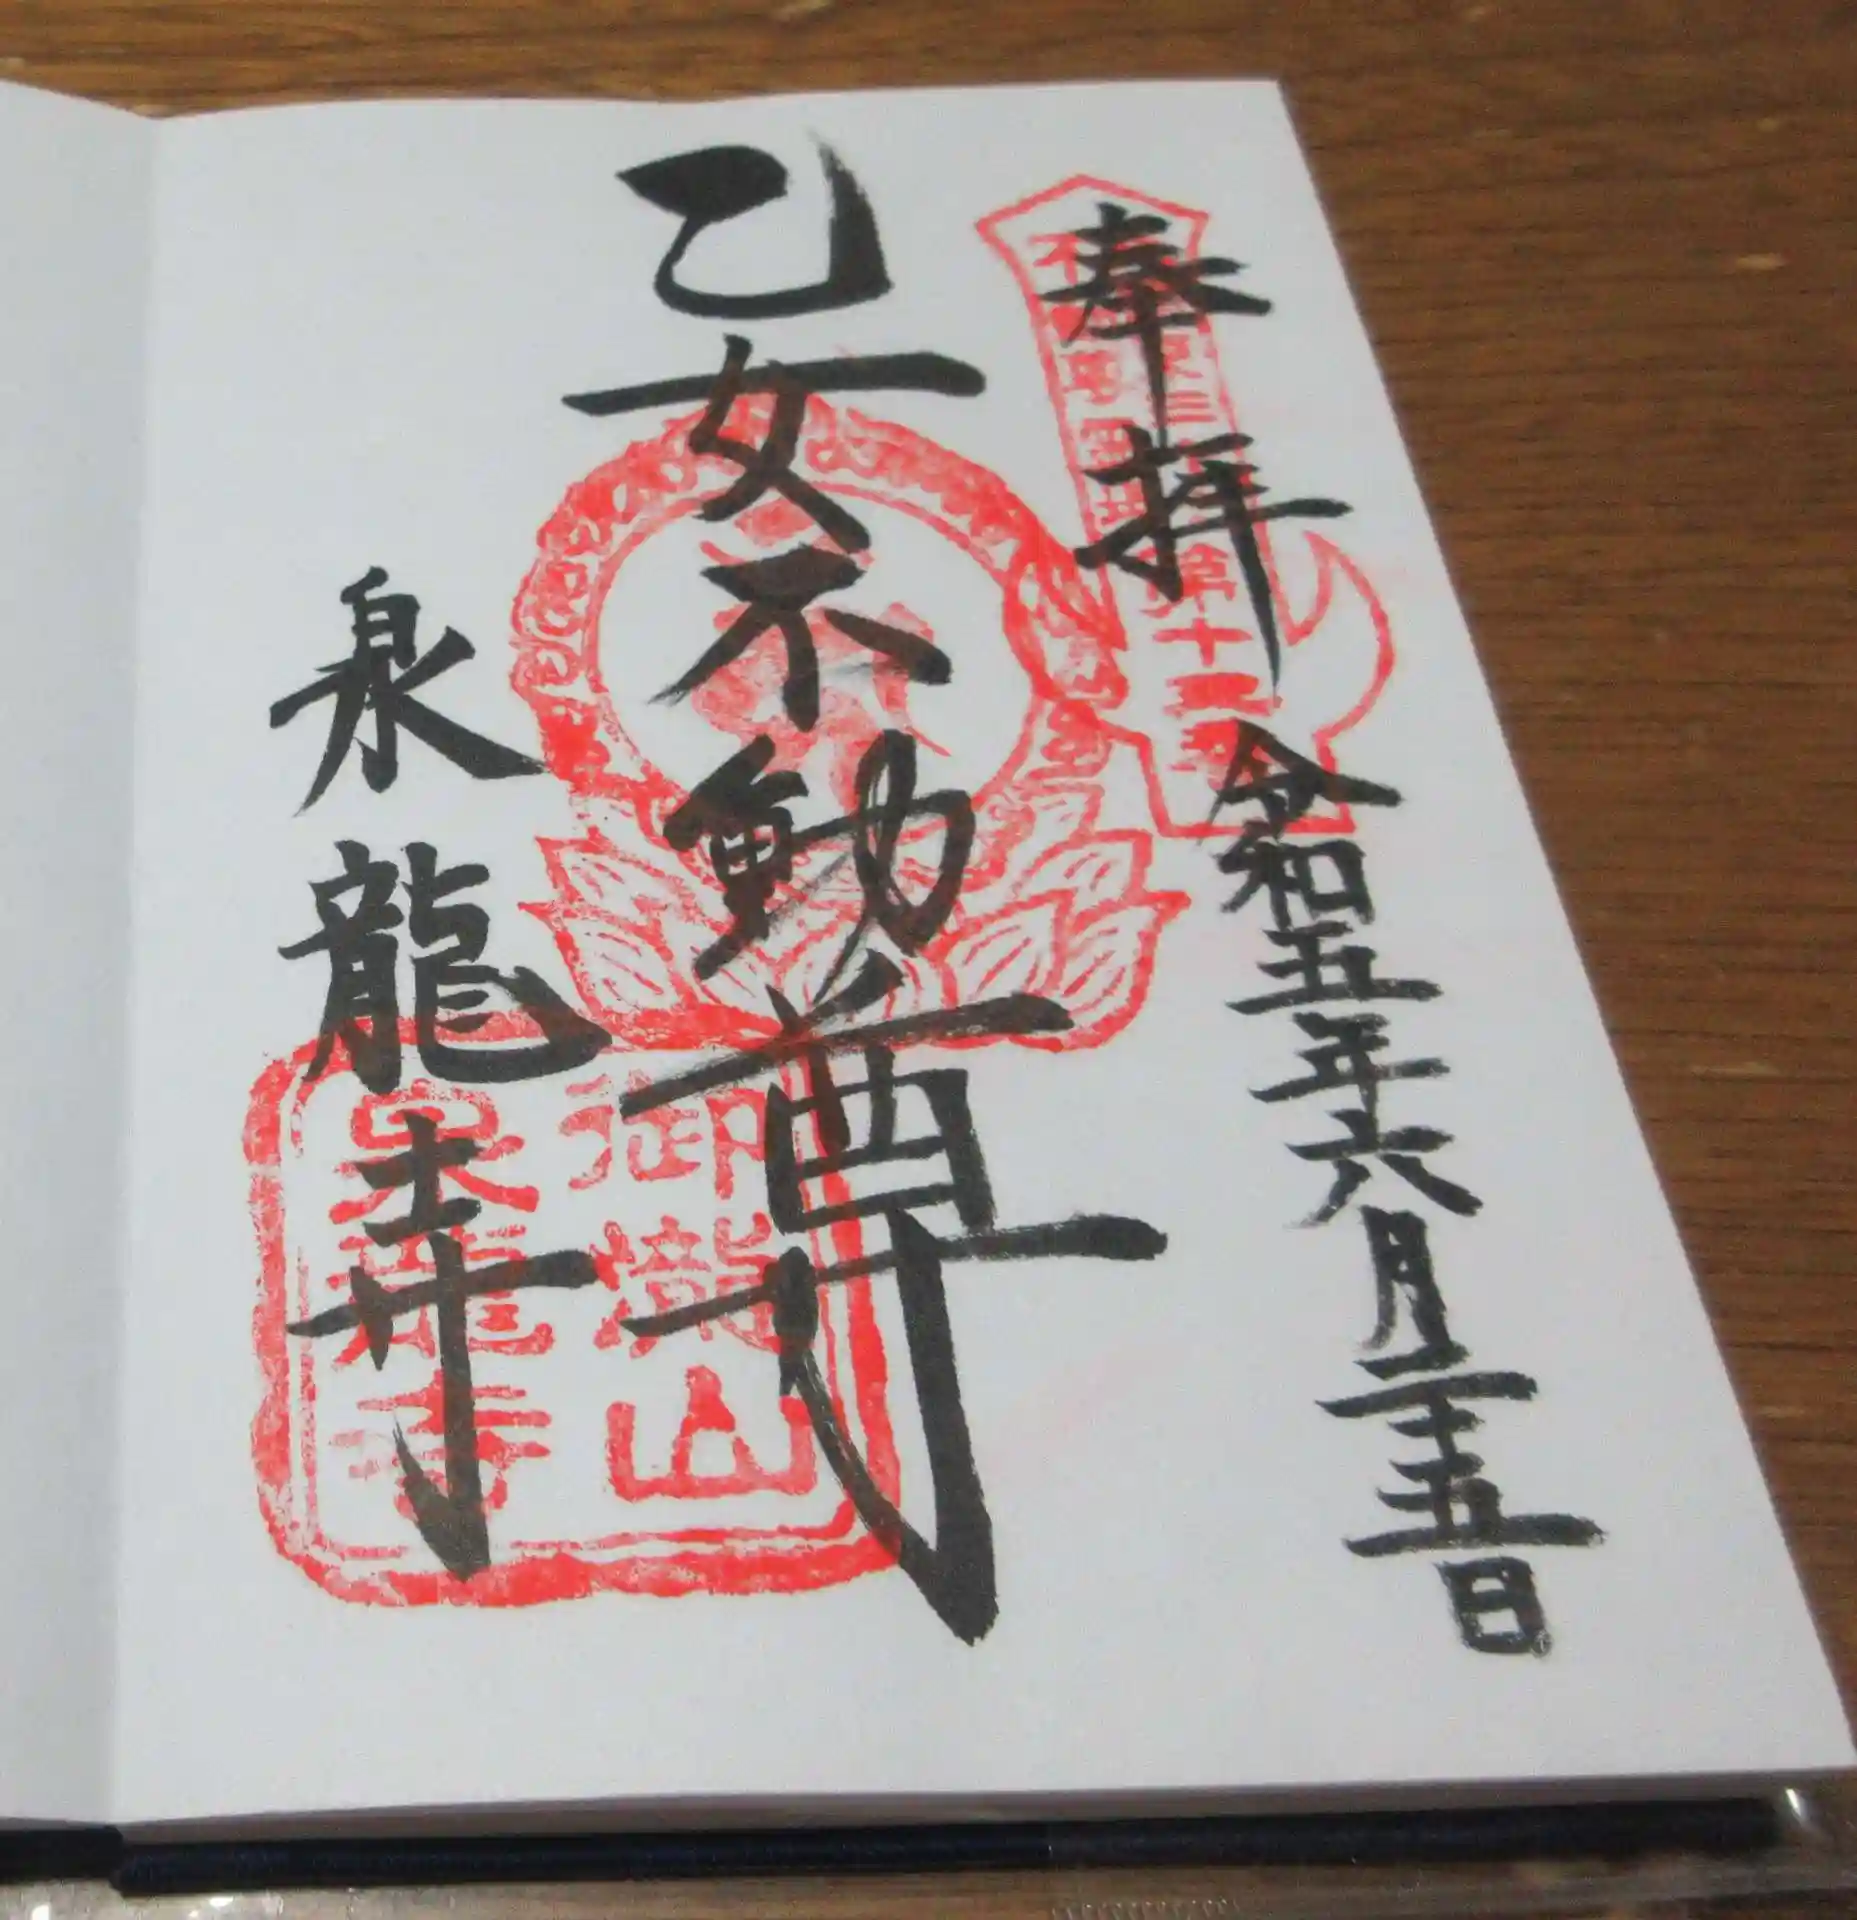 奉拝
令和五年六月二十五日
乙女不動尊
泉龍寺
第十二番
御瀧山
泉龍寺